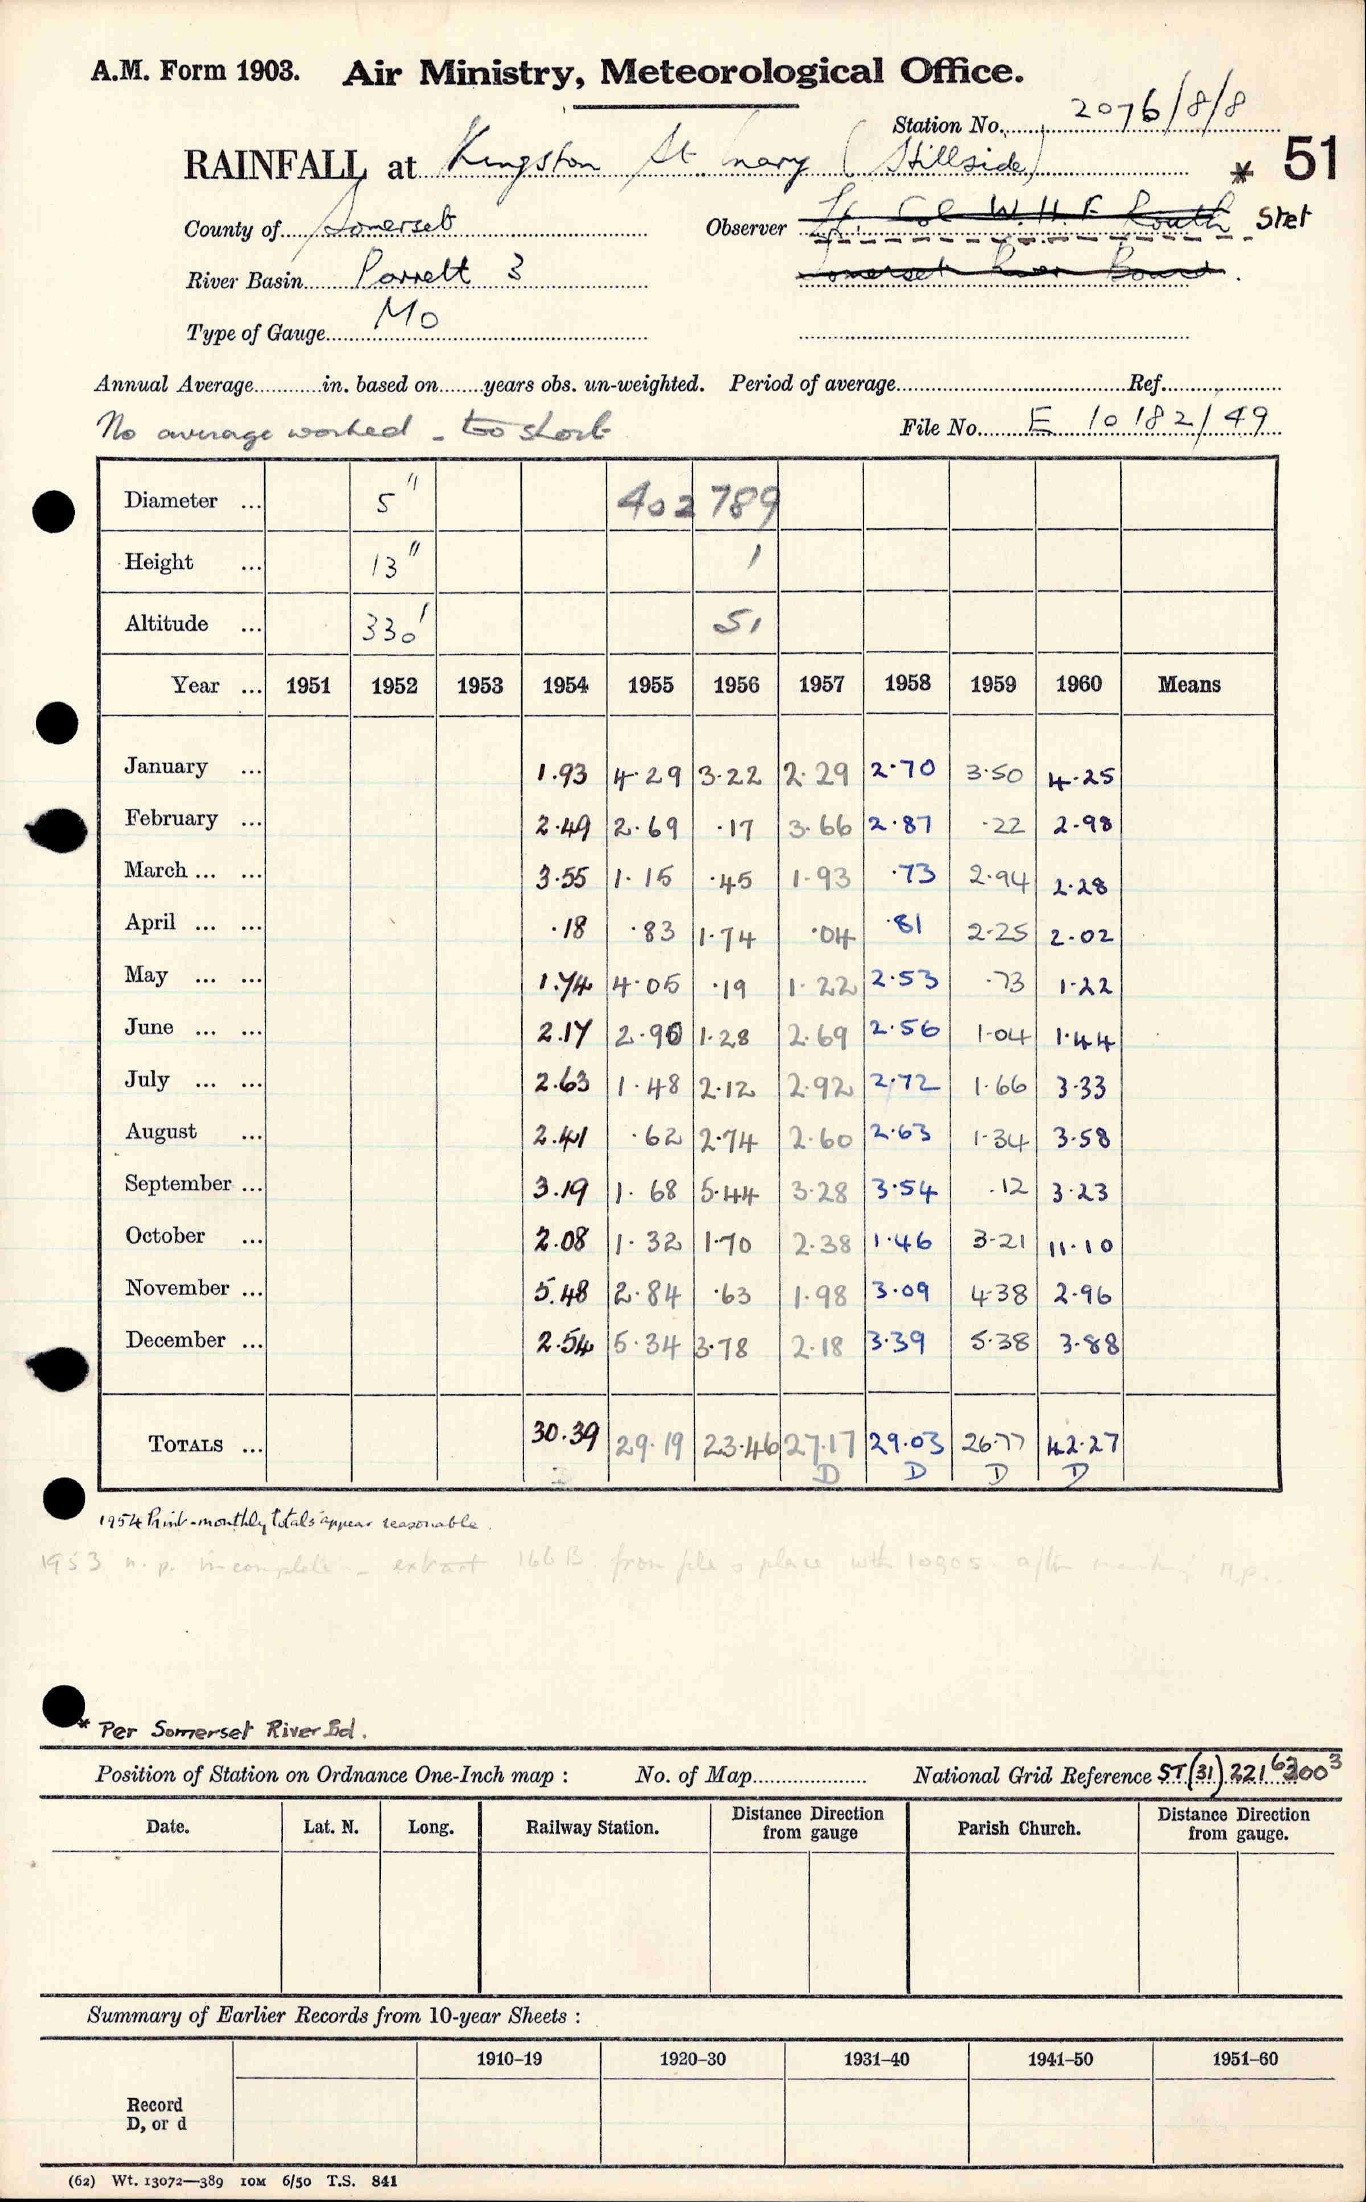 A.M. Form 1903. Air Ministry, Meteorological Office.
Station No. 2076/8/8
RAINFALL at Kingston St Mary (Stillside) * 51
County of Somerset Observer Lt. Col W.H.F. Routh Stet
River Basin Parrett 3 Somerset River Board.
Type of Gauge Mo
Annual Average in. based on years obs. un-weighted. Period of average Ref.
No average worked - too short File No. E 10182/49
Diameter ... 5" 402 789
Height ... 13" 1
Altitude ... 330' 51
Year ... 1951 1952 1953 1954 1955 1956 1957 1958 1959 1960 Means
January ... 1.93 4.29 3.22 2.29 2.70 3.50 4.25
February ... 2.49 2.69 .17 3.66 2.87 .22 2.98
March ... ... 3.55 1.15 .45 1.93 .73 2.94 2.28
April ... ... .18 .83 1.74 .04 .81 2.25 2.02
May ... ... 1.74 4.05 .19 1.22 2.53 .73 1.22
June ... ... 2.17 2.90 1.28 2.69 2.56 1.04 1.44
July ... ... 2.63 1.48 2.12 2.92 2.72 1.66 3.33
August ... 2.41 .62 2.74 2.60 2.63 1.34 3.58
September ... 3.19 1.68 5.44 3.28 3.54 .12 3.23
October ... 2.08 1.32 1.70 2.38 1.46 3.21 11.10
November ... 5.48 2.84 .63 1.98 3.09 4.38 2.96
December ... 2.54 5.34 3.78 2.18 3.39 5.38 3.88
TOTALS ... 30.39 29.19 23.46 27.17 29.03 26.77 42.27
D D D D
1954 Print - monthly totals appear reasonable.
1953 n.p. incomplete - extract 166B from file & place with 10905 after n.p.
* Per Somerset River Bd.
Position of Station on Ordnance One-Inch map : No. of Map National Grid Reference ST(31) 221
Date. Lat. N. Long. Railway Station. Distance Direction from gauge Parish Church. Distance Direction from gauge.
Summary of Earlier Records from 10-year Sheets :
1910–19 1920–30 1931–40 1941–50 1951–60
Record
D, or d
(62) Wt. 13072—389 10M 6/50 T.S. 841